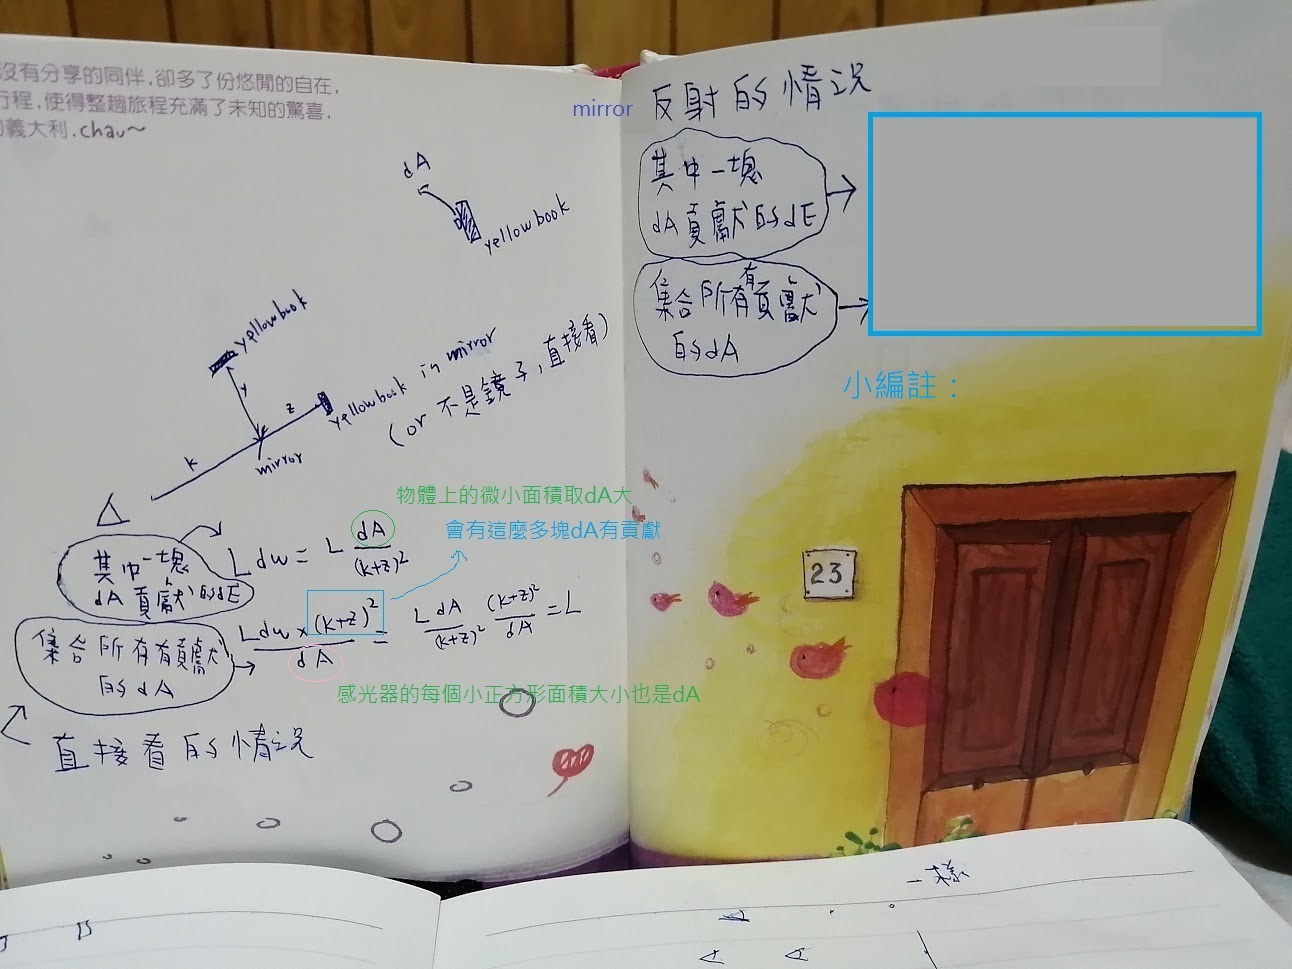 沒有分享的同伴,卻多了份悠閒的自在,
行程,使得整趟旅程充滿了未知的驚喜,
義大利,chau～
dA
yellowbook
yellowbook
y
z
yellowbook in mirror
(or 不是鏡子,直接看)
k
mirror
物體上的微小面積取dA大
會有這麼多塊dA有貢獻
其中一塊
dA貢獻的dE
L dw = L dA/(k+z)²
集合所有有貢獻
的dA
Ldw × (k+z)²/dA = L dA/(k+z)² (k+z)²/dA = L
感光器的每個小正方形面積大小也是dA
直接看的情況
mirror 反射的情況
其中一塊
dA貢獻的dE
集合所有有貢獻
的dA
小編註：
23
一樣